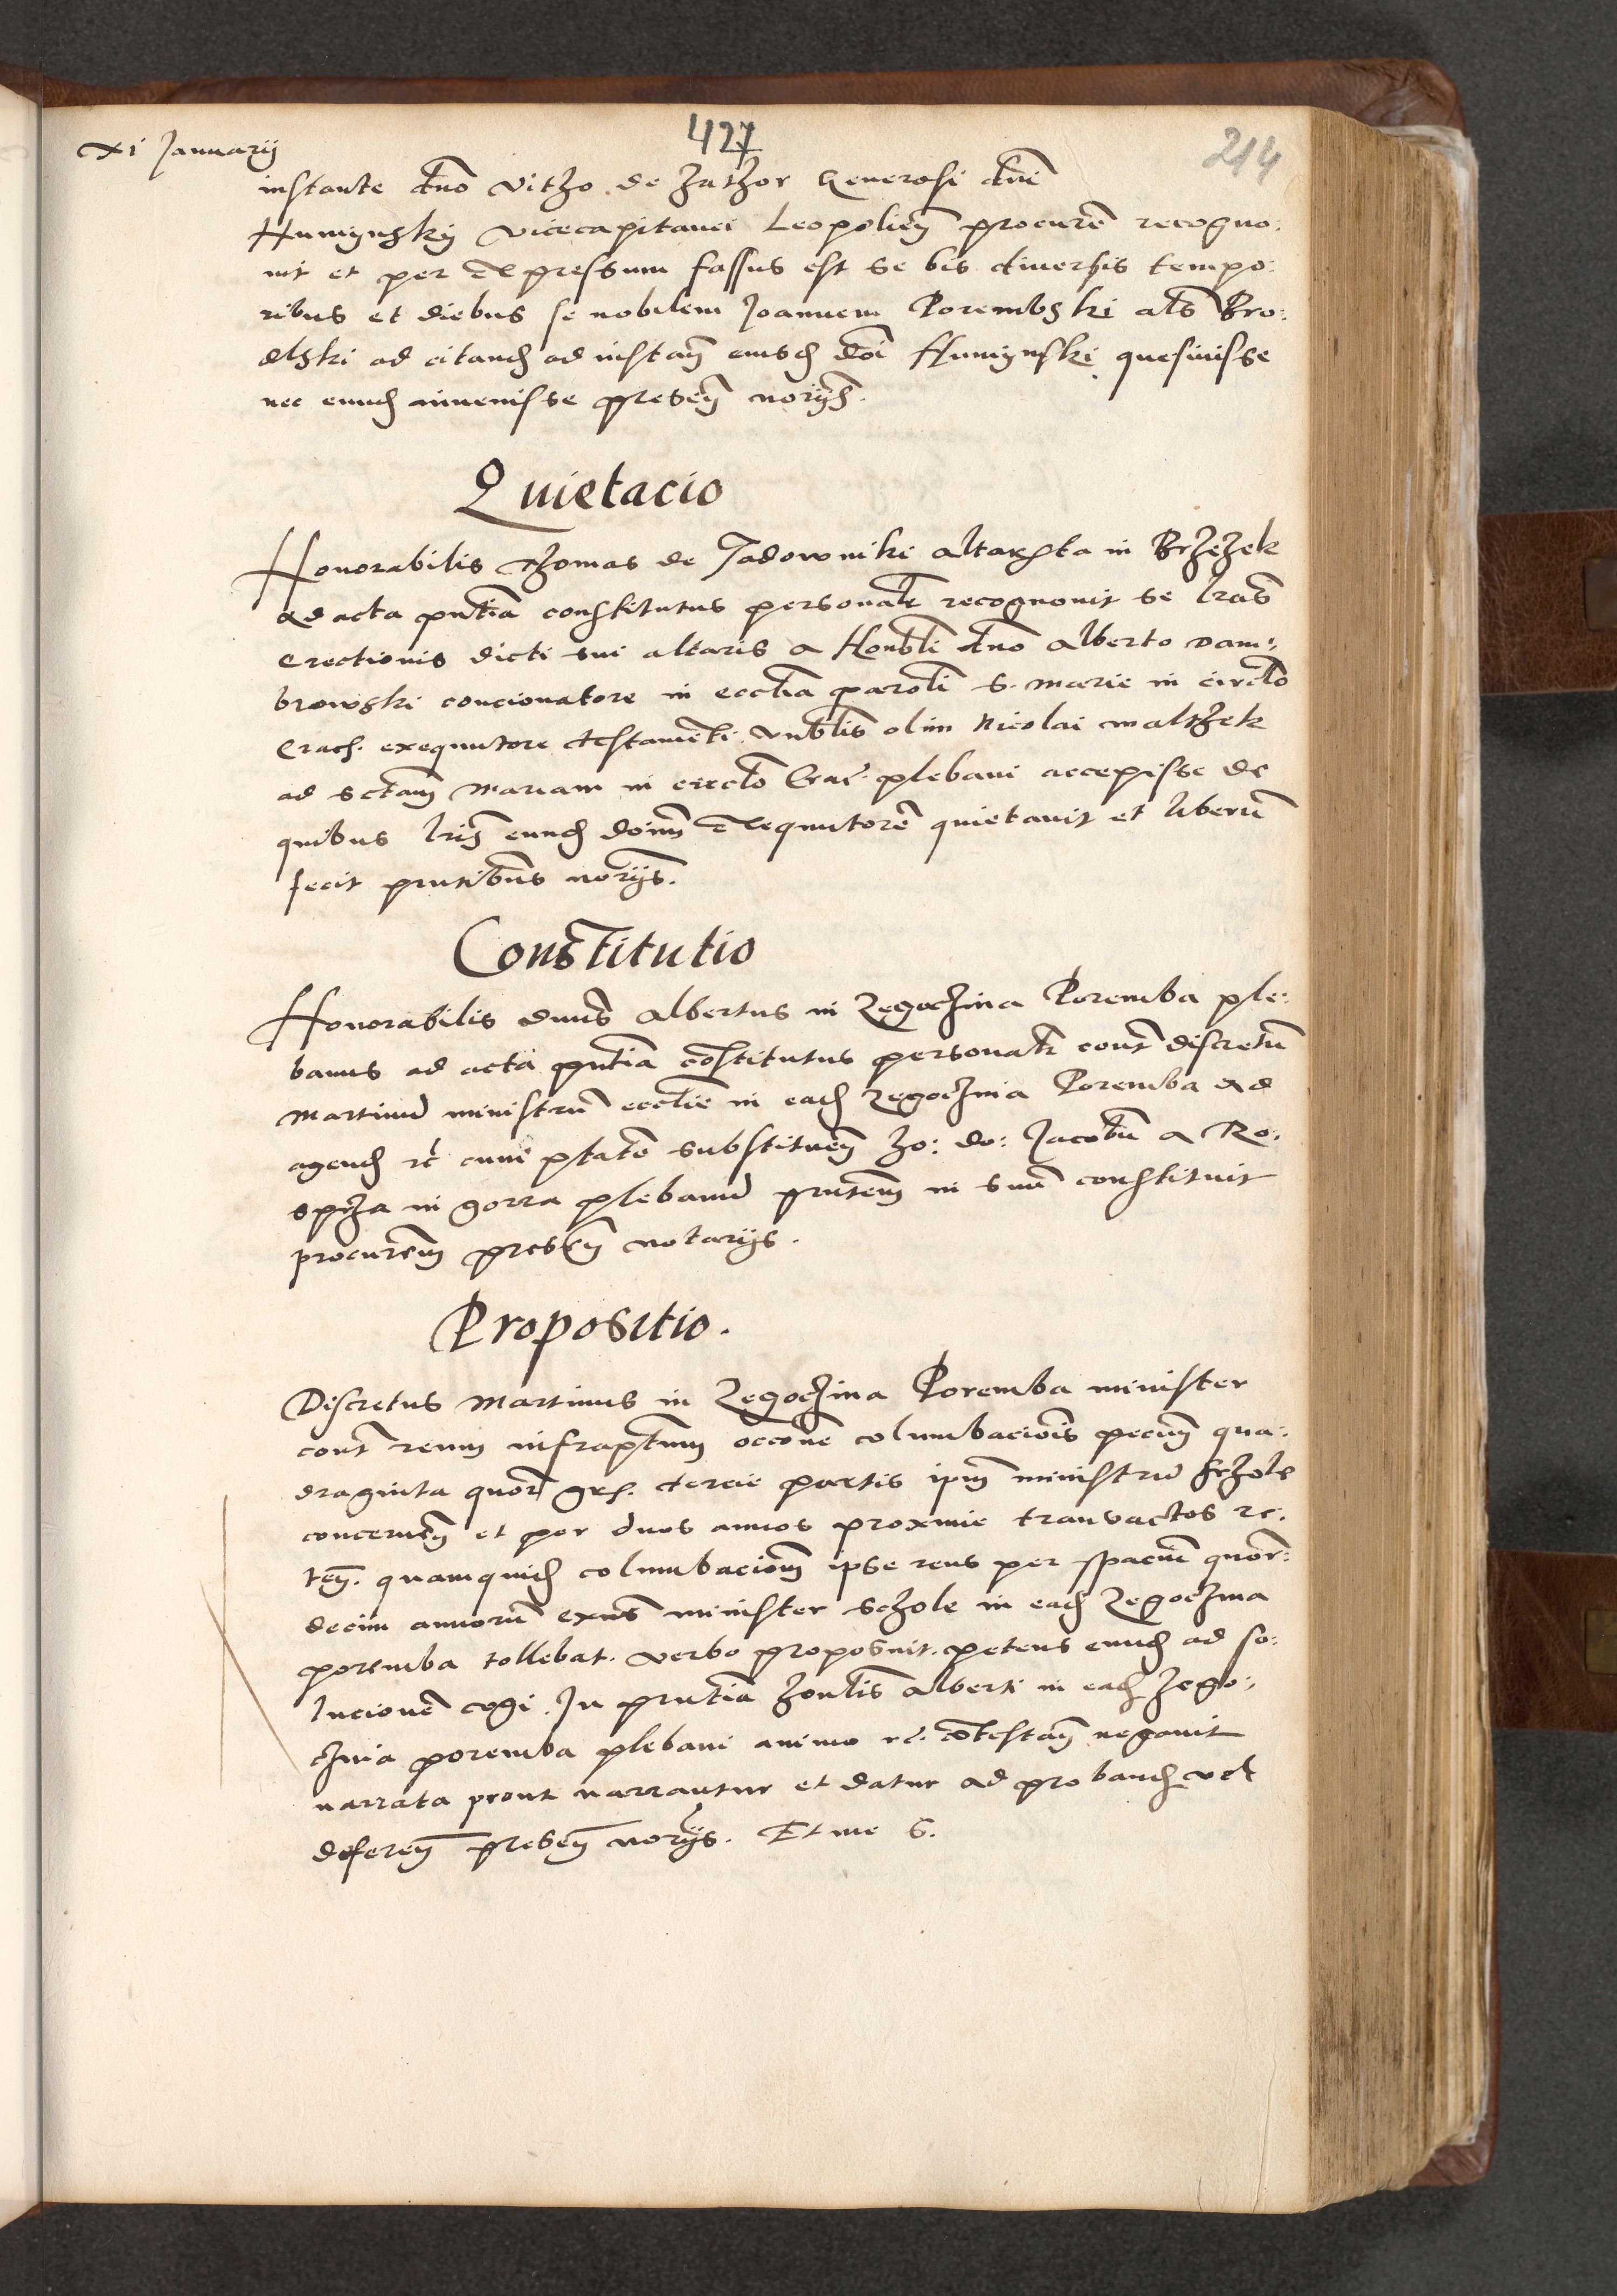 427
214
xi Januarij
instante dno Vitho de Zathor Generosi dni
Humynsky vicecapitanei Leopolien procure recogno:
uit et per expressum fassus est se bis diuersis tempo:
ribus et diebus se nobilem Joannem Porembski als Bro:
dlski ad citand ad instan eiusd doi Humynski quesiuisse
nec eund inuenisse presen norijs.
Quietacio
Honorabilis Thomas de Jadowniki altarista in Brzezek
ad acta pntia constitutus personalr recognouit se lras
erectionis dicti sui altaris a Honbli dno Alberto Dam:
browski concionatore in ecclia paroli S. Marie in circlo
Crac. exequutore testamenti Vnblis olim Nicolai Malthek
ad sctam Mariam in circlo Crac. plebani accepisse de
quibus lris eund doim exequutore quietauit et liberu
fecit pntibus norijs.
Constitutio
Honorabilis dnus Albertus in Zegoczina Poremba ple:
banus ad acta pntia constitutus personalr cont discretu
Martinu ministru ecclie in ead Zegoczina Poremba ad
agend rc cum ptate substituen ho: do: Jacobu a Ro:
spcza in gorra plebanu pntem in suu constituit
procurem presen notarijs.
Propositio.
Discretus Martinus in Zegoczina Poremba minister
cont reum infraptum occone columbacionis pecum qua:
draginta quor grs. tercie partis ipm ministru schole
concernen et per duos annos proxime transactos re:
ten. quamquid columbaciom ipse reus per spaciu quor:
decim annoru exns minister schole in ead Zegoczina
poremba tollebat. verbo proposuit. petens eund ad so:
lucione cogi. In pntia honblis Alberti in ead Zego:
czina poremba plebani animo rc. contestan negauit
narrata prout narrantur et datur ad proband vel
deferen presen norijs. Et me S.